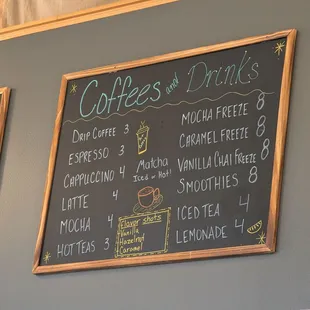 Coffees and Drinks
Drip Coffee 3
Espresso 3
Cappuccino 4
Latte 4
Mocha 4
Hot Teas 3
Matcha
Iced or Hot!
Flavor shots
Vanilla
Hazelnut
Caramel
Mocha Freeze 8
Caramel Freeze 8
Vanilla Chai Freeze 8
Smoothies 8
Iced Tea 4
Lemonade 4